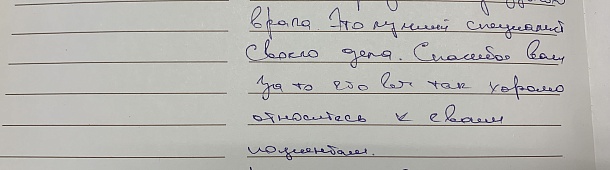 врача. Это лучший специалист
своего дела. Спасибо вам
за то что вы так хорошо
относитесь к своим
пациентам.